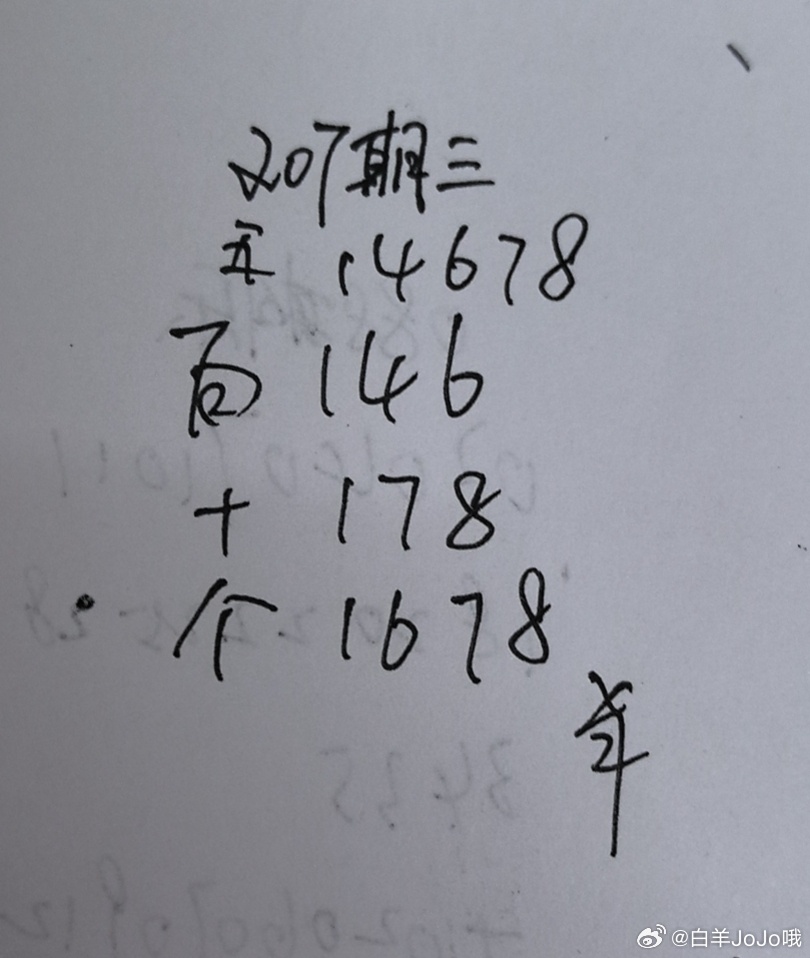 207期三
五 14678
百 146
十 178
个 1678
羊
@白羊JoJo哦